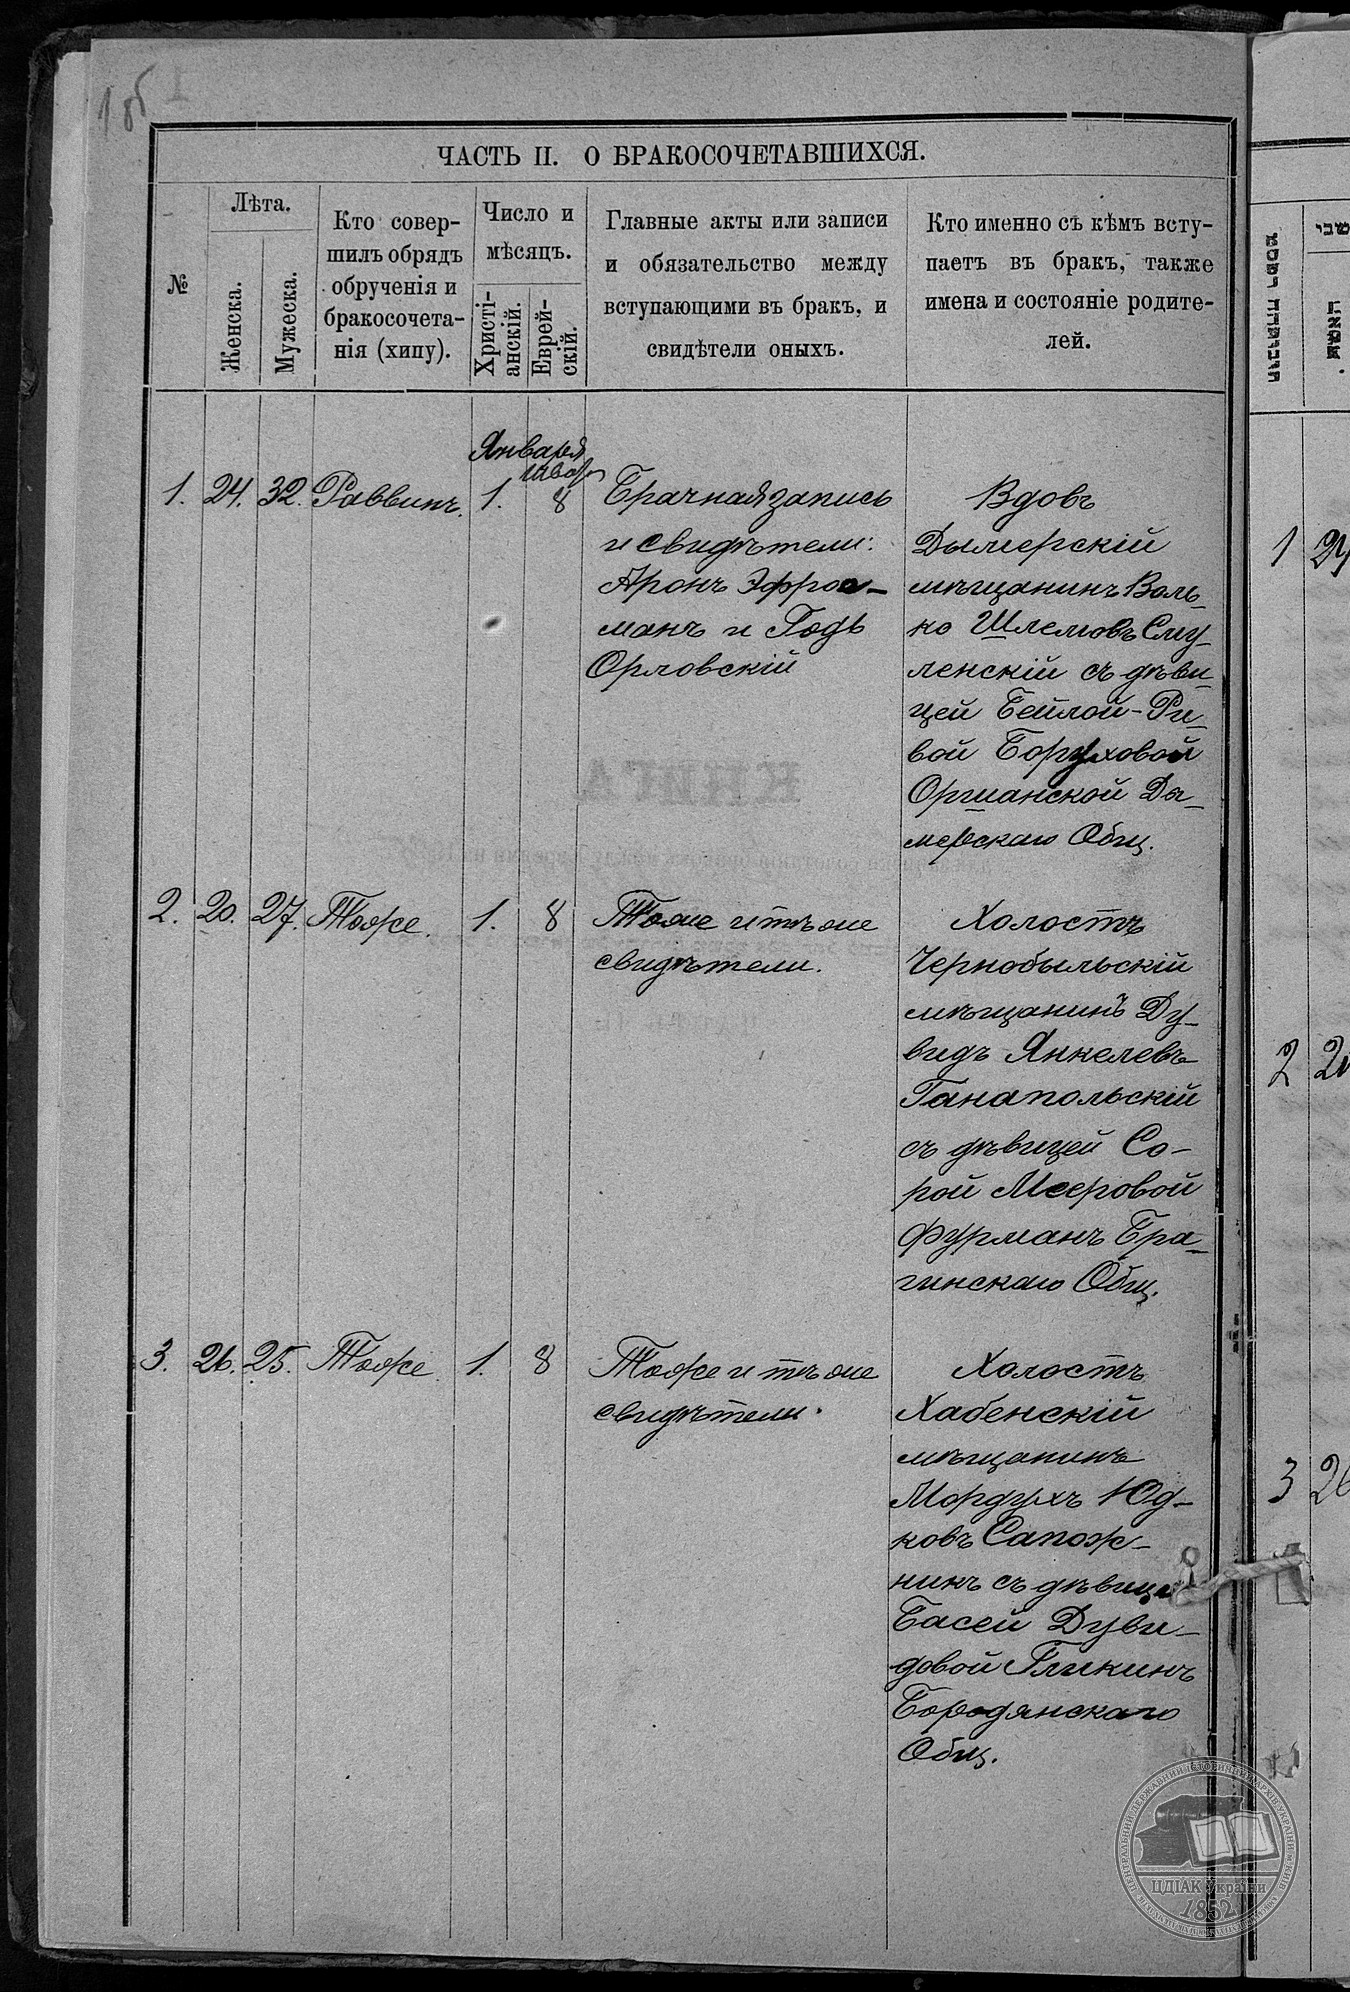 1 об
ЧАСТЬ II. О БРАКОСОЧЕТАВШИХСЯ.
№
Лѣта.
Женска.
Мужеска.
Кто совер-
шилъ обрядъ
обрученія и
бракосочета-
нія (хипу).
Число и
мѣсяцъ.
Христі-
анскій.
Еврей-
скій.
Главные акты или записи
и обязательство между
вступающими въ бракъ, и
свидѣтели оныхъ.
Кто именно съ кѣмъ всту-
паетъ въ бракъ, также
имена и состояніе родите-
лей.
Января
1. 24. 32. Раввинъ. 1. 8
Брачная запись
и свидѣтели:
Аронъ Эфрос-
манъ и Годь
Орловскій
Вдовъ
Дымерскій
мѣщанинъ Воль-
ко Шлемовъ Сму-
ленскій съ дѣви-
цей Бейлой-Ри-
вой Боруховой
Оршанской Ды-
мерскаго Общ.
КНИГА
2. 20. 27. Тоже. 1. 8
Тоже и тѣ же
свидѣтели.
Холостъ
Чернобыльскій
мѣщанинъ Ду-
видъ Янкелевъ
Ганапольскій
съ дѣвицей Со-
рой Мееровой
Фурманъ Бра-
гинскаго Общ.
3. 26. 25. Тоже 1. 8
Тоже и тѣ же
свидѣтели.
Холостъ
Хабенскій
мѣщанинъ
Мордухъ Юд-
ковъ Сапож-
никъ съ дѣвицей
Басей Дуви-
довой Гликинъ
Бородянскаго
Общ.
1
2
2
3 26
ЦДІАК України
1852